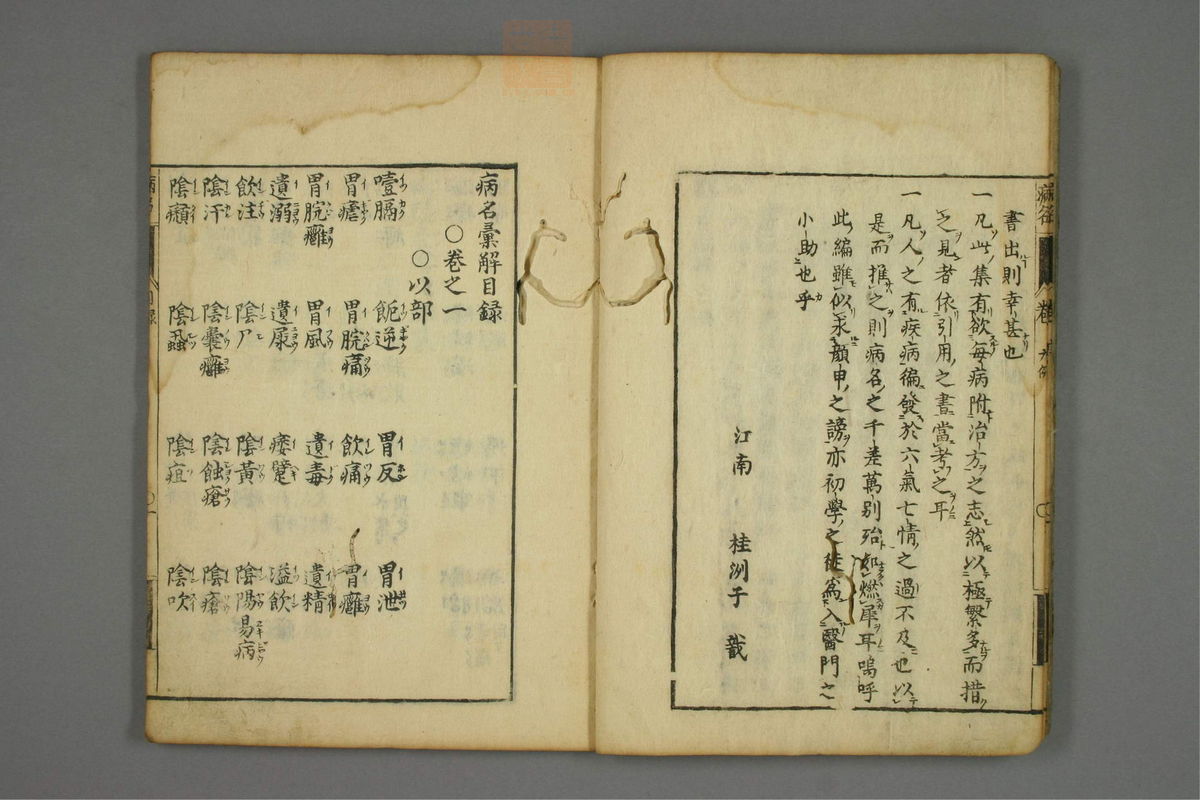 書出則幸甚也
一凡此集有欲每病附治方之志然以極繁多而措
之見者依引用之書當考之耳
一凡人之有疾病徧發於六氣七情之過不及也以
是而推之則病名之千差萬別殆如燃犀耳嗚呼
此編雖似汞顔申之謗亦初學之徒爲入醫門之
小助也乎
江南 桂洲子 識
病名彙解目録
○卷之一
○以部
噎膈 飩逆 胃反 胃泄
胃瘡 胃脘痛 飲痛 胃癰
胃脘癰 胃風 遺毒 遺精
遺溺 遺尿 痿躄 溢飲
飲注 陰尸 陰黃 陰陽易病
陰汗 陰囊癰 陰蝕瘡 陰瘡
陰㿗 陰蝨 陰疽 陰吹